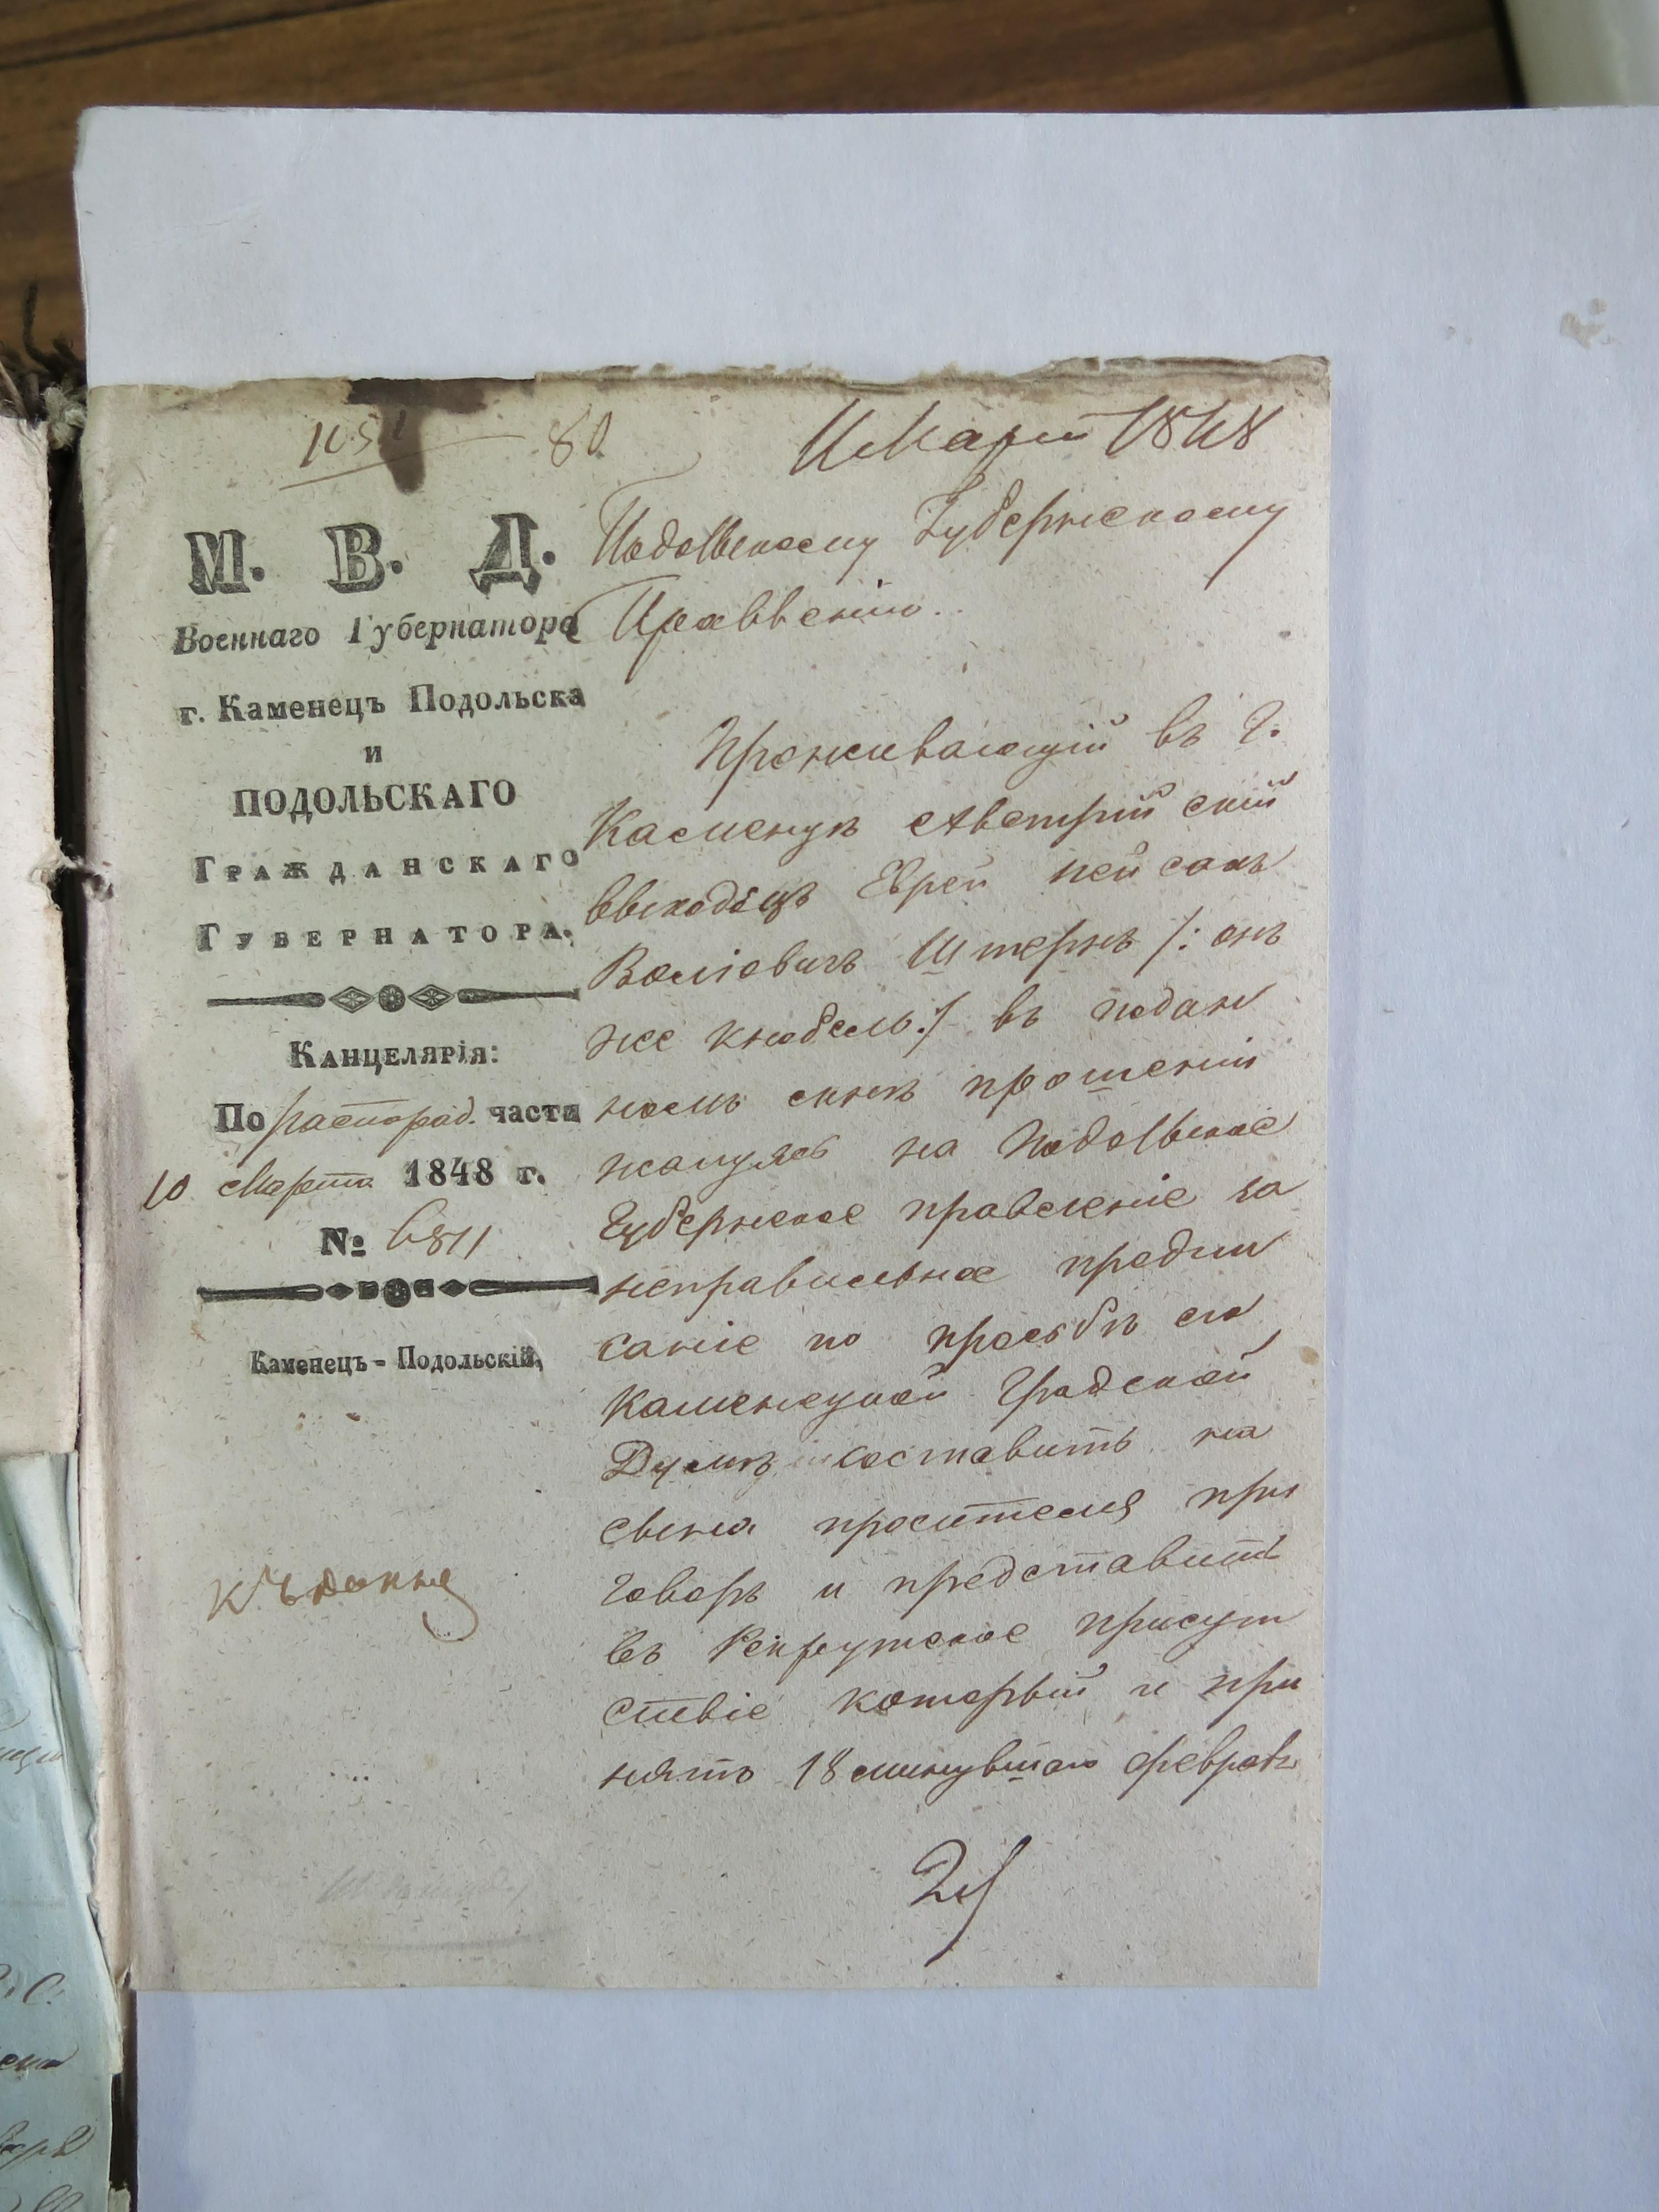 80
11 Марта 1848
М. В. Д.
Военнаго Губернатора
г. Каменецъ Подольска
и
ПОДОЛЬСКАГО
ГРАЖДАНСКАГО
ГУБЕРНАТОРА.
КАНЦЕЛЯРІЯ:
По распоряд. части
10 Марта 1848 г.
№ 6811
Каменецъ-Подольскій,
Подольскому Губернскому
Правленію.
Проживающій въ г.
Каменцѣ Австрійскій
выходецъ Еврей Пейсахъ
Волковичъ Штернъ /: онъ
же Кнобель :/ въ подан
номъ мнѣ прошеніи
жалуясь на Подольское
Губернское правленіе за
неправильное предпи
саніе по просьбѣ его
Каменецкой Градской
Думѣ составить на
сына просителя при
говоръ и представить
въ Рекрутское присут
ствіе который и при
нятъ 18 минувшаго февраля